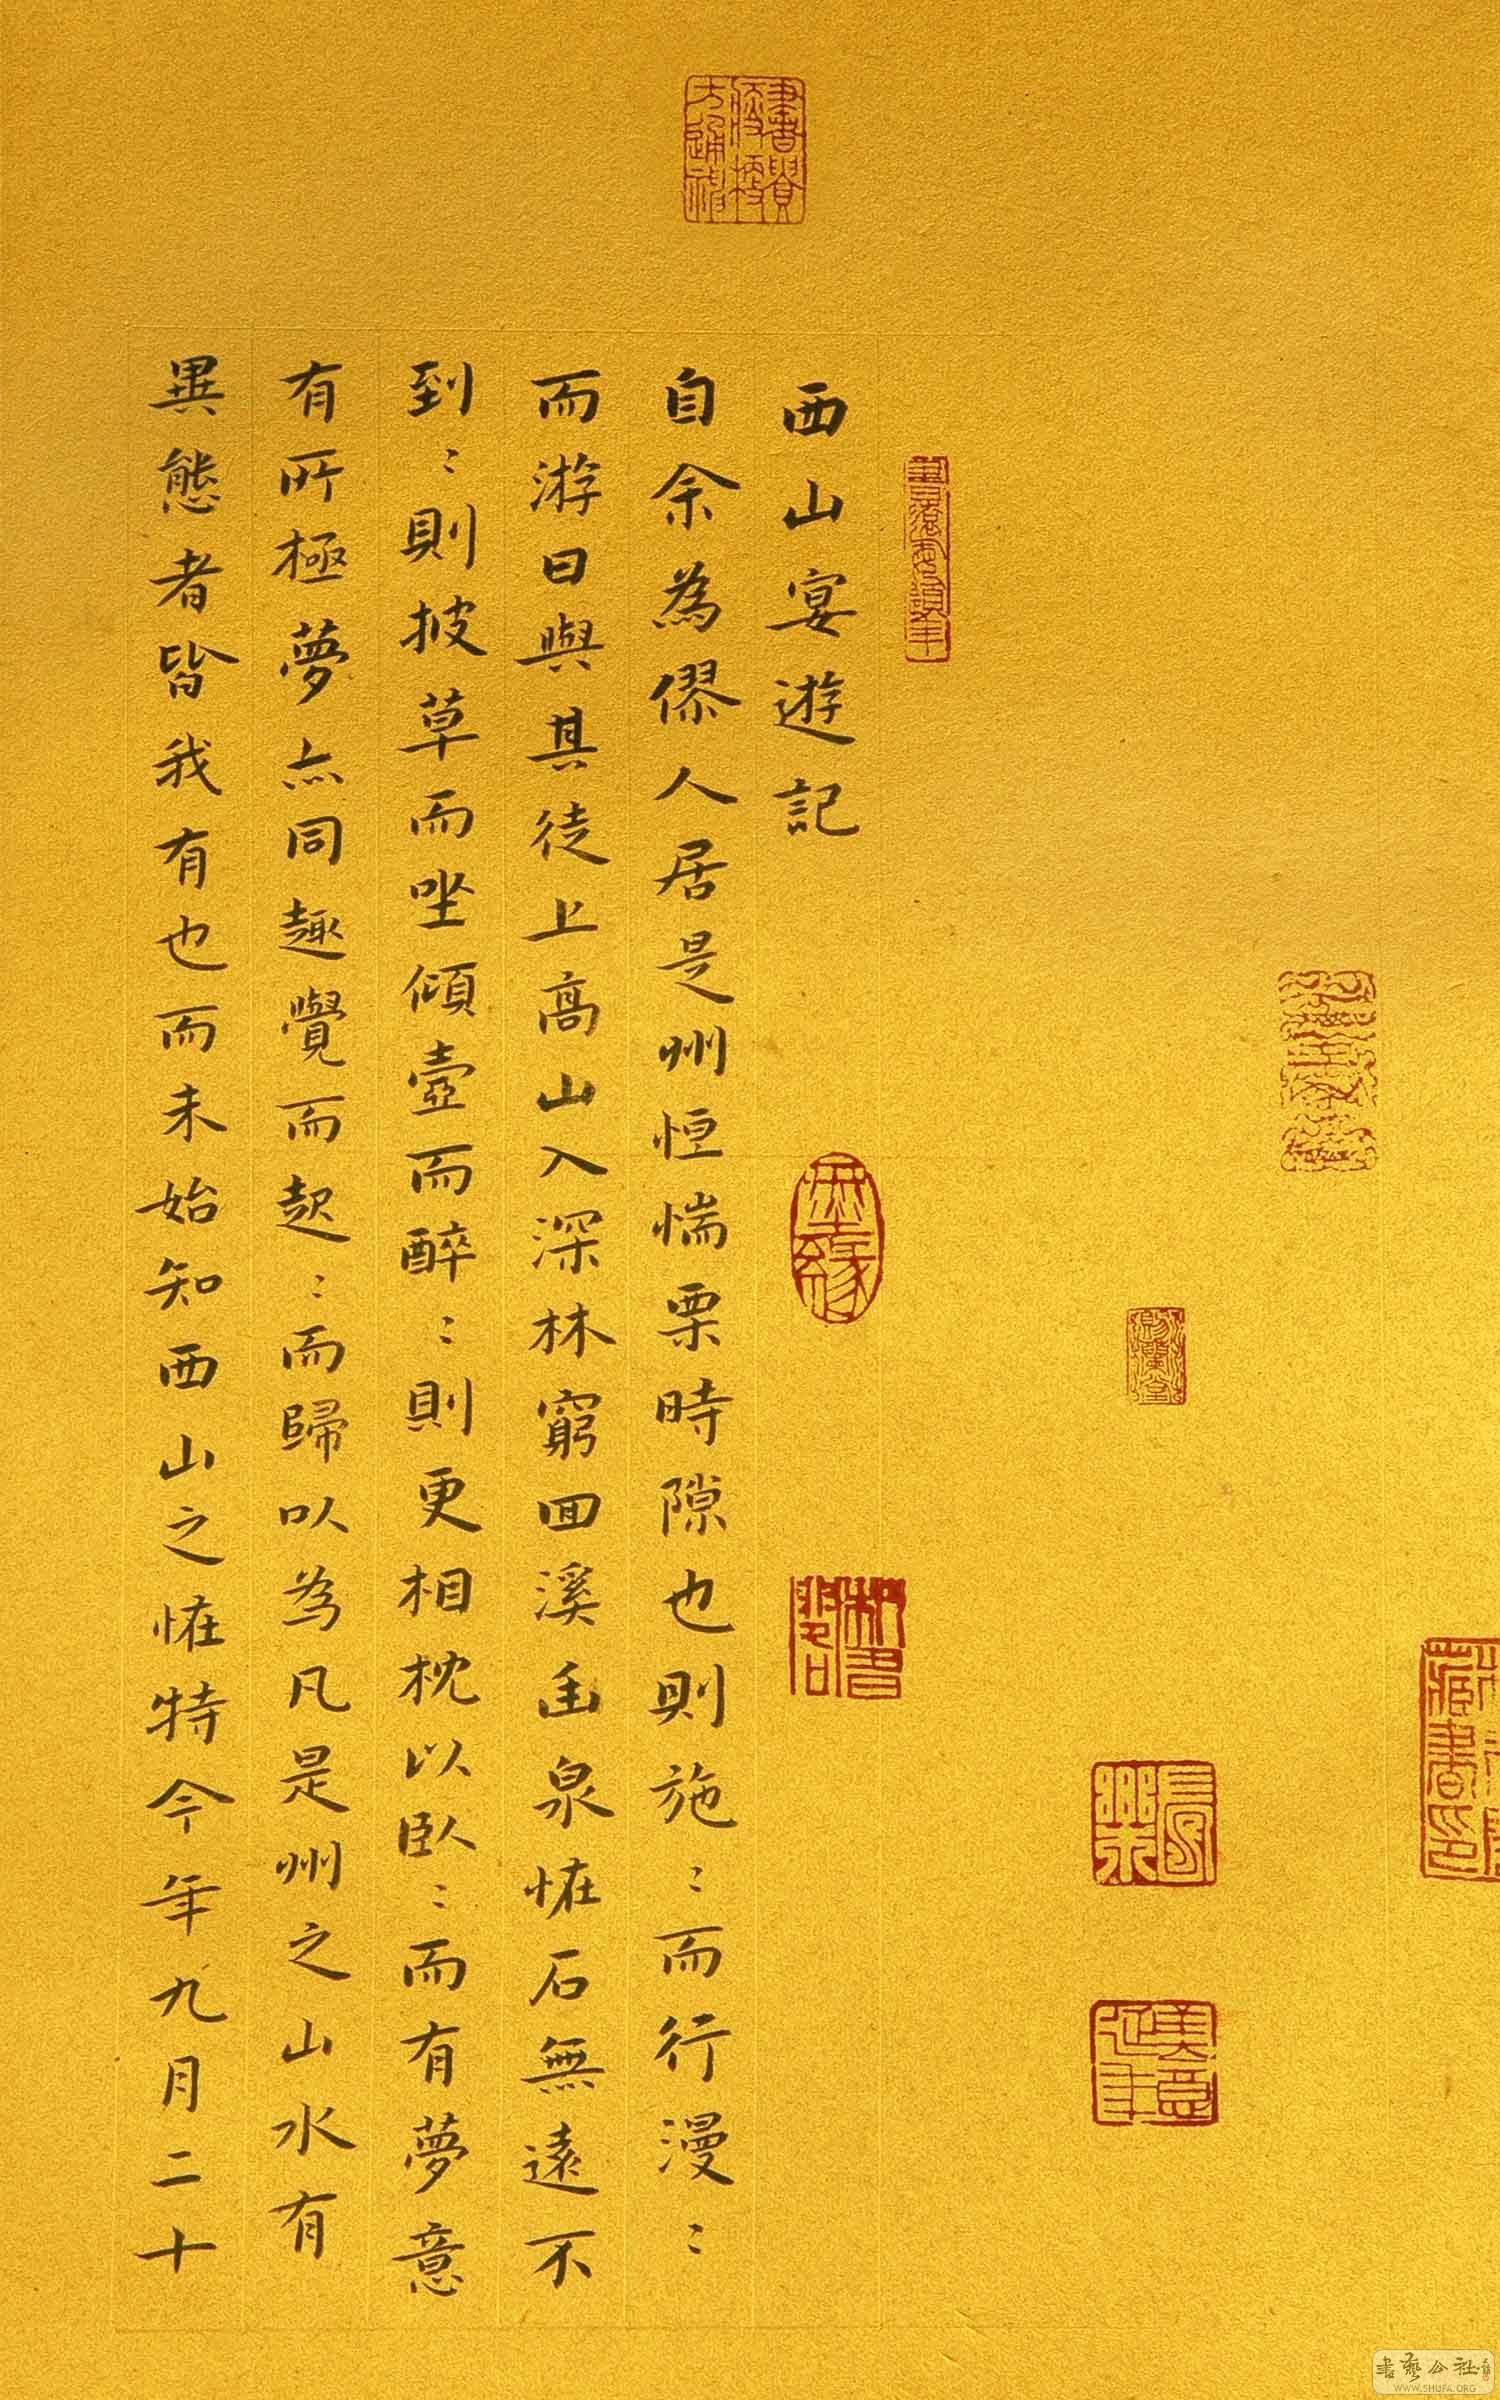 西山宴遊記
自余為僇人居是州恒惴栗時隙也則施〻而行漫〻
而游日與其徒上高山入深林窮回溪幽泉恠石無遠不
到〻則披草而坐傾壺而醉〻則更相枕以臥〻而有夢意
有所極夢亦同趣覺而起〻而歸以為凡是州之山水有
異態者皆我有也而未始知西山之恠特今年九月二十
書藝公社
WWW.SHUFA.ORG